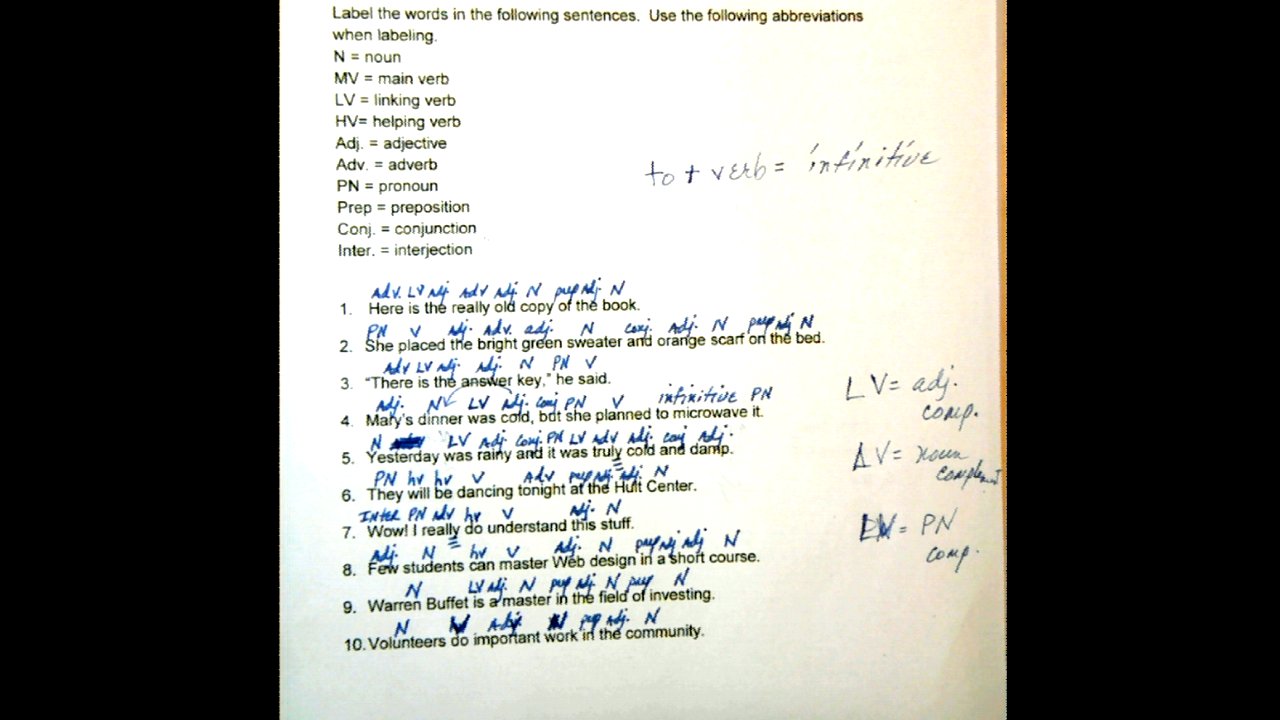 Label the words in the following sentences. Use the following abbreviations
when labeling.
N = noun
MV = main verb
LV = linking verb
HV= helping verb
Adj. = adjective
Adv. = adverb
to + verb = infinitive
PN = pronoun
Prep = preposition
Conj. = conjunction
Inter. = interjection
Adv. LV Adj. Adv Adj. N prep Adj. N
1. Here is the really old copy of the book.
PN V Adj. Adv. adj. N conj. Adj. N prep Adj N
2. She placed the bright green sweater and orange scarf on the bed.
Adv LV Adj. Adj. N PN V
3. "There is the answer key," he said.
Adj. N LV Adj. Conj PN V infinitive PN
4. Mary's dinner was cold, but she planned to microwave it.
LV = adj.
comp.
N LV Adj Conj. PN LV Adv Adj. conj Adj.
5. Yesterday was rainy and it was truly cold and damp.
LV = noun
complement
PN hv hv V Adv prep Adj. Adj. N
6. They will be dancing tonight at the Hult Center.
Inter PN Adv hv V Adj. N
7. Wow! I really do understand this stuff.
LV = PN
comp.
Adj. N hv V Adj. N prep Adj Adj N
8. Few students can master Web design in a short course.
N LV Adj. N prep Adj. N prep N
9. Warren Buffet is a master in the field of investing.
N V Adj. N prep Adj. N
10. Volunteers do important work in the community.